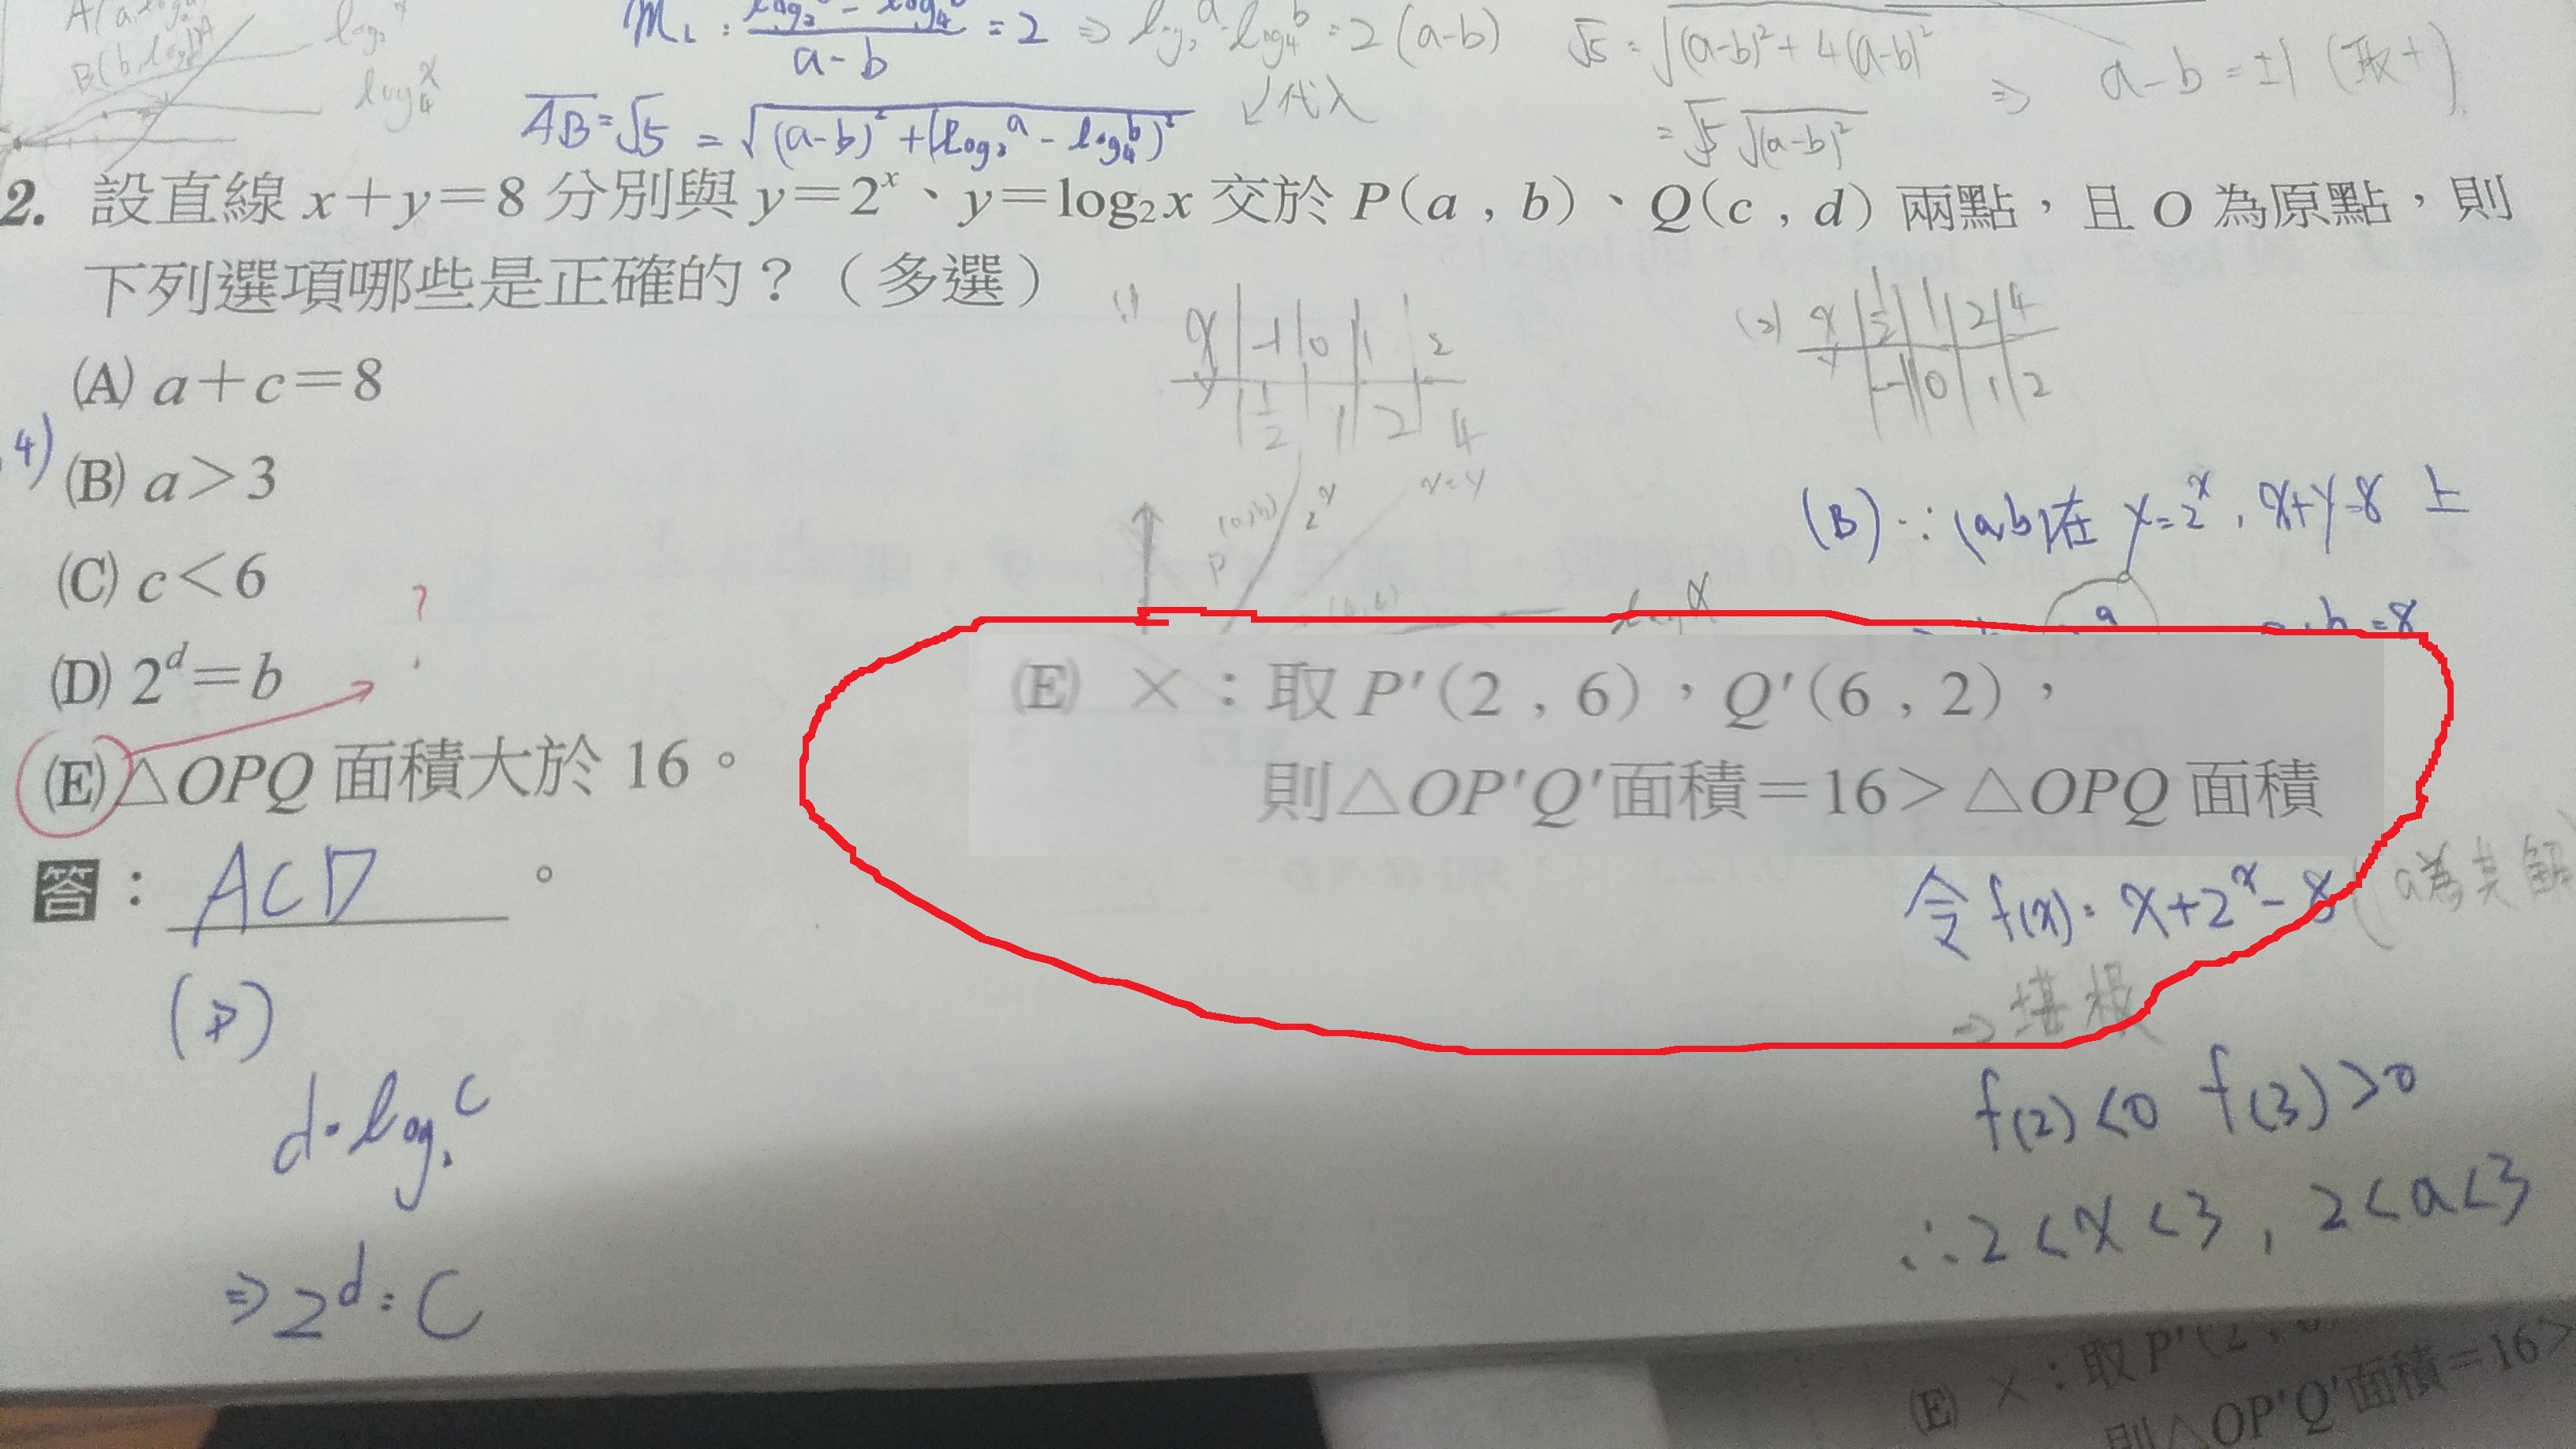 A(a, log
B(b, log
log₂x
log₄x
m_L : (log₂a - log₄b)/(a-b) = 2 ⇒ log₂a - log₄b = 2(a-b)
√5 = √((a-b)²+4(a-b)²)
= √5 √((a-b)²)
⇒ a-b = ±1 (取+)
AB = √5 = √((a-b)²+(log₂a - log₄b)²)
↙代入
2. 設直線 x+y=8 分別與 y=2ˣ、y=log₂x 交於 P(a,b)、Q(c,d) 兩點,且 O 為原點,則
下列選項哪些是正確的?(多選)
(1) x -1 0 1 2
y 1/2 1 2 4
(2) x 1/2 1 2 4
y -1 0 1 2
(A) a+c=8
4)
(B) a>3
(C) c<6
(D) 2ᵈ=b
?
(E) △OPQ 面積大於 16。
答: ACD 。
P (a,b) 2ˣ x=y
(B) ∵ (a,b)在 y=2ˣ, x+y=8 上
(E) ×:取 P′(2,6),Q′(6,2),
則△OP′Q′面積=16>△OPQ 面積
令 f(x)= x+2ˣ-8 (a為其解
⇒ 堪根
f(2)<0 f(3)>0
∴2<x<3, 2<a<3
(D)
d=log₂c
⇒2ᵈ=C
(E) ×:取P′(2,
則△OP′Q′面積=16>